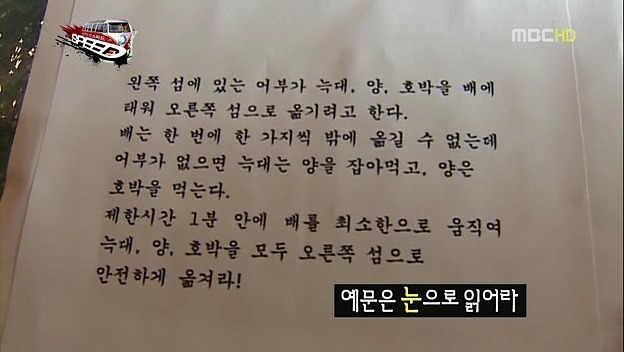 MBC HD
왼쪽 섬에 있는 어부가 늑대, 양, 호박을 배에
태워 오른쪽 섬으로 옮기려고 한다.
배는 한 번에 한 가지씩 밖에 옮길 수 없는데
어부가 없으면 늑대는 양을 잡아먹고, 양은
호박을 먹는다.
제한시간 1분 안에 배를 최소한으로 움직여
늑대, 양, 호박을 모두 오른쪽 섬으로
안전하게 옮겨라!
예문은 눈으로 읽어라